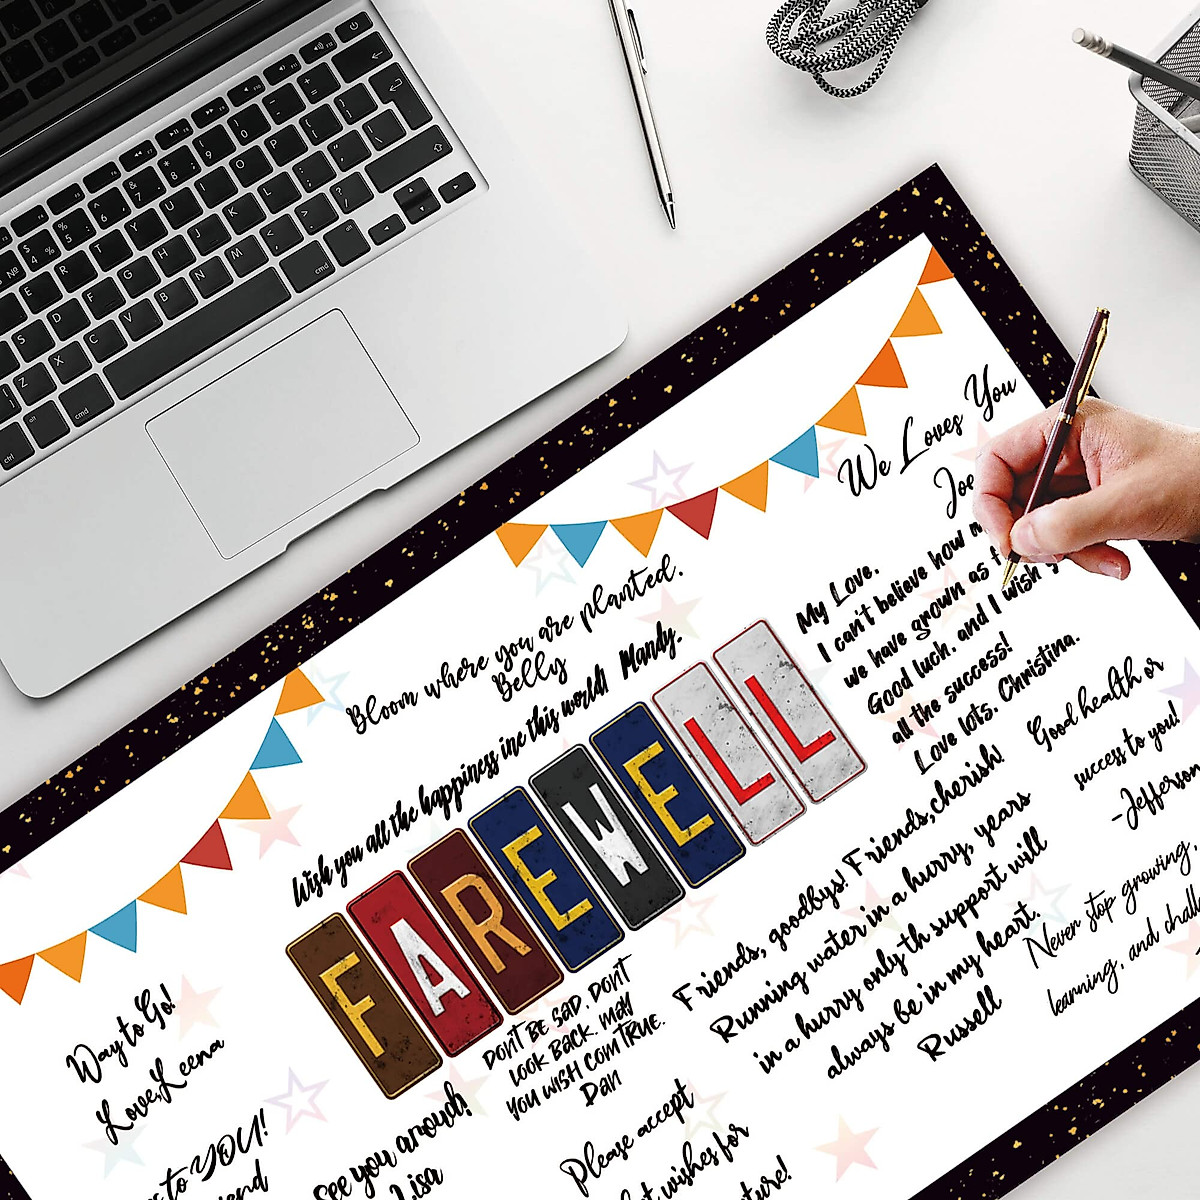 We Loves You
Joe
Bloom where you are planted.
Belly
Wish you all the happiness inc this world! Mandy.
My Love,
I can't believe how
we have grown as
Good luck, and I wish
all the success!
Love lots. Christina.
FAREWELL
Good health or
success to you!
-Jefferson
Friends, goodbys! Friends,cherish!
Running water in a hurry, years
in a hurry only th support will
always be in my heart.
Russell
Never stop growing,
learning, and
Way to Go!
Love,Leena
DON'T BE SAD. DON'T
LOOK BACK. MAY
YOU WISH COM TRUE.
DAN
to YOU!
See you aroud!
Lisa
Please accept
wishes for